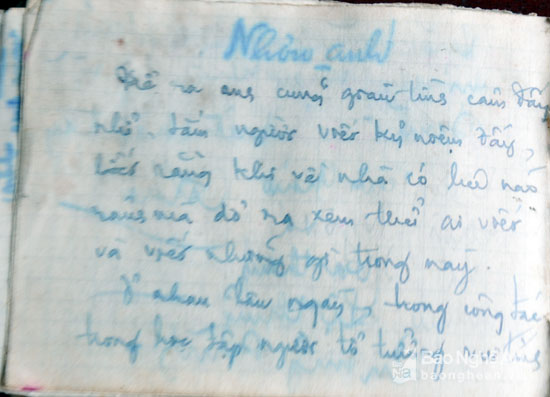 Nhân anh
Kể ra ans cung giau tình cảm đấy
nhỉ. lắm người viết kỷ niệm đấy,
biết rằng khi về nhà có lúc nào
mà dở ra xem thử ai viết
và viết những gì trong này.
Ở nhau lâu ngày, trong công tác
trong học tập người tổ
Báo Nghệ An
baonghean.vn